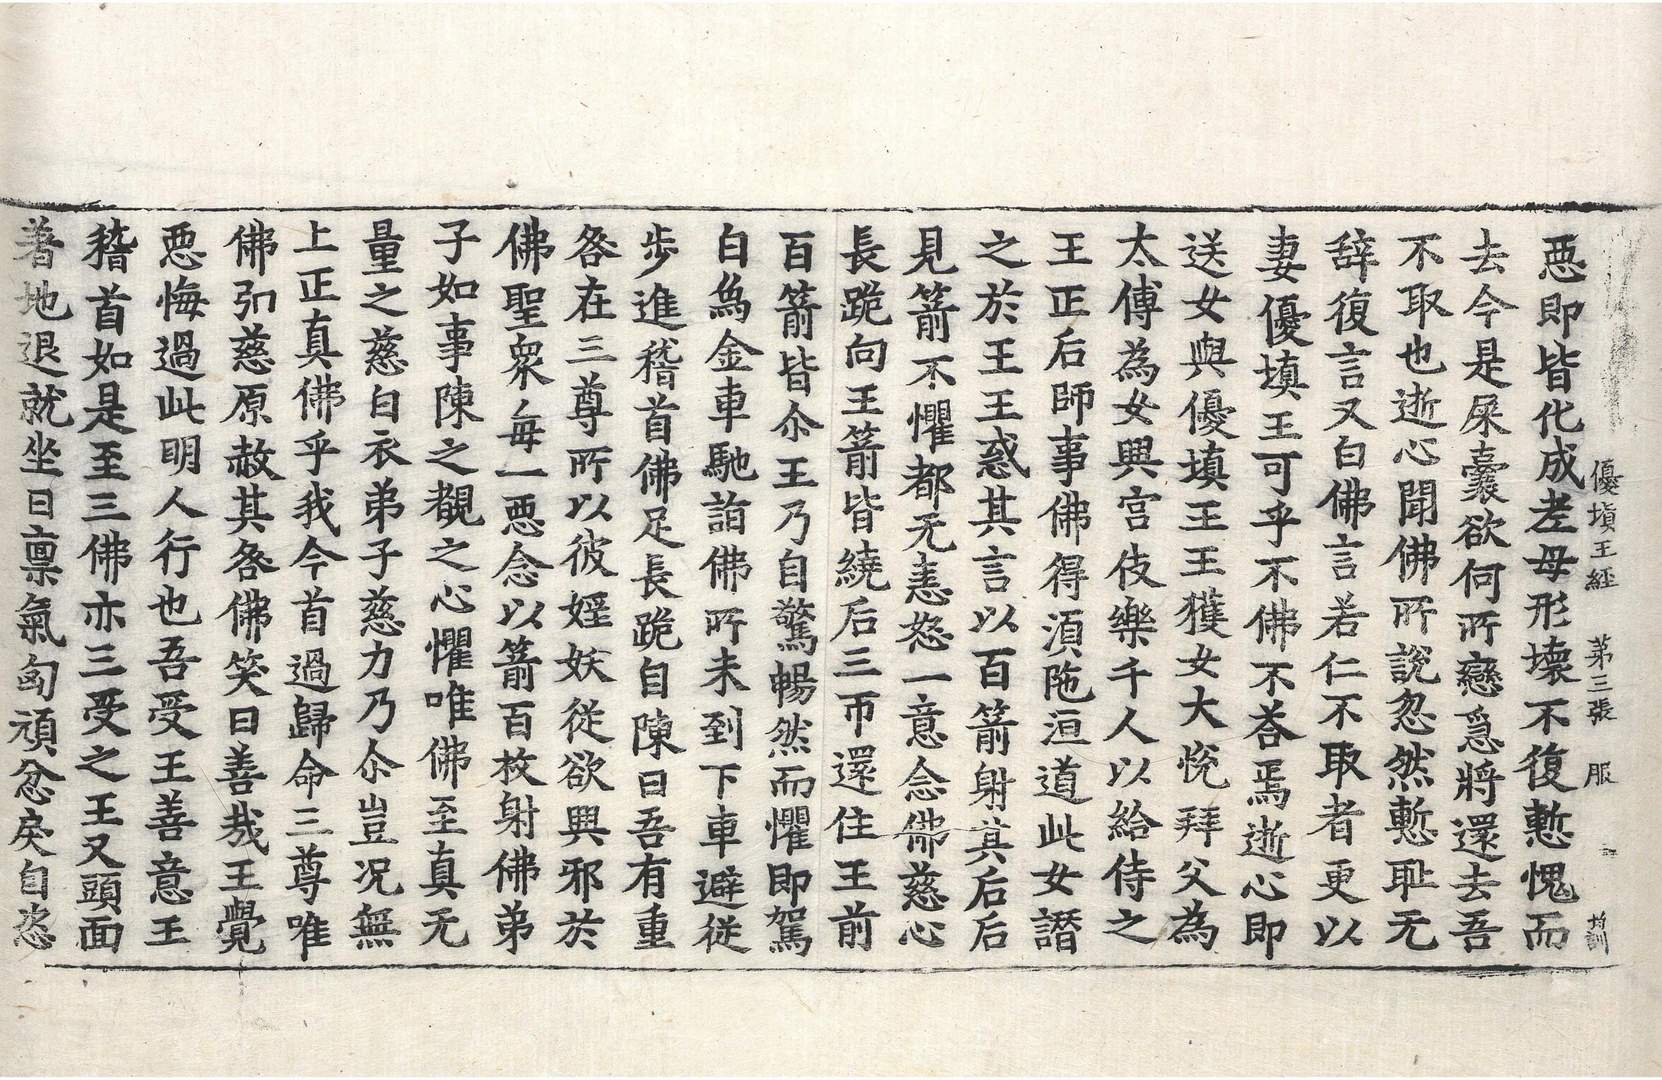 優塡王經 第三張 服
惡即皆化成老母形壞不復慙愧而
去今是屎囊欲何所戀急將還去吾
不取也逝心聞佛所說忽然慙耻无
辞復言又白佛言若仁不取者更以
妻優塡王可乎不佛不荅焉逝心即
送女與優塡王王獲女大悅拜父為
太傅為女興宫伎樂千人以給侍之
王正后師事佛得湏陁洹道此女譖
之於王王惑其言以百箭射其后后
見箭不懼都无恚怒一意念佛慈心
長跪向王箭皆繞后三帀還住王前
百箭皆尒王乃自驚惕然而懼即駕
白爲金車馳詣佛所未到下車避從
步進稽首佛足長跪自陳曰吾有重
咎在三尊所以彼婬妖従欲興邪於
佛聖衆每一惡念以箭百枚射佛弟
子如事陳之覩之心懼唯佛至真无
量之慈白衣弟子慈力乃尒豈况無
上正真佛乎我今首過歸命三尊唯
佛弘慈原赦其咎佛笑曰善哉王覺
惡悔過此明人行也吾受王善意王
稽首如是至三佛亦三受之王又頭面
著地退就坐曰禀氣匈頑忿戾自恣